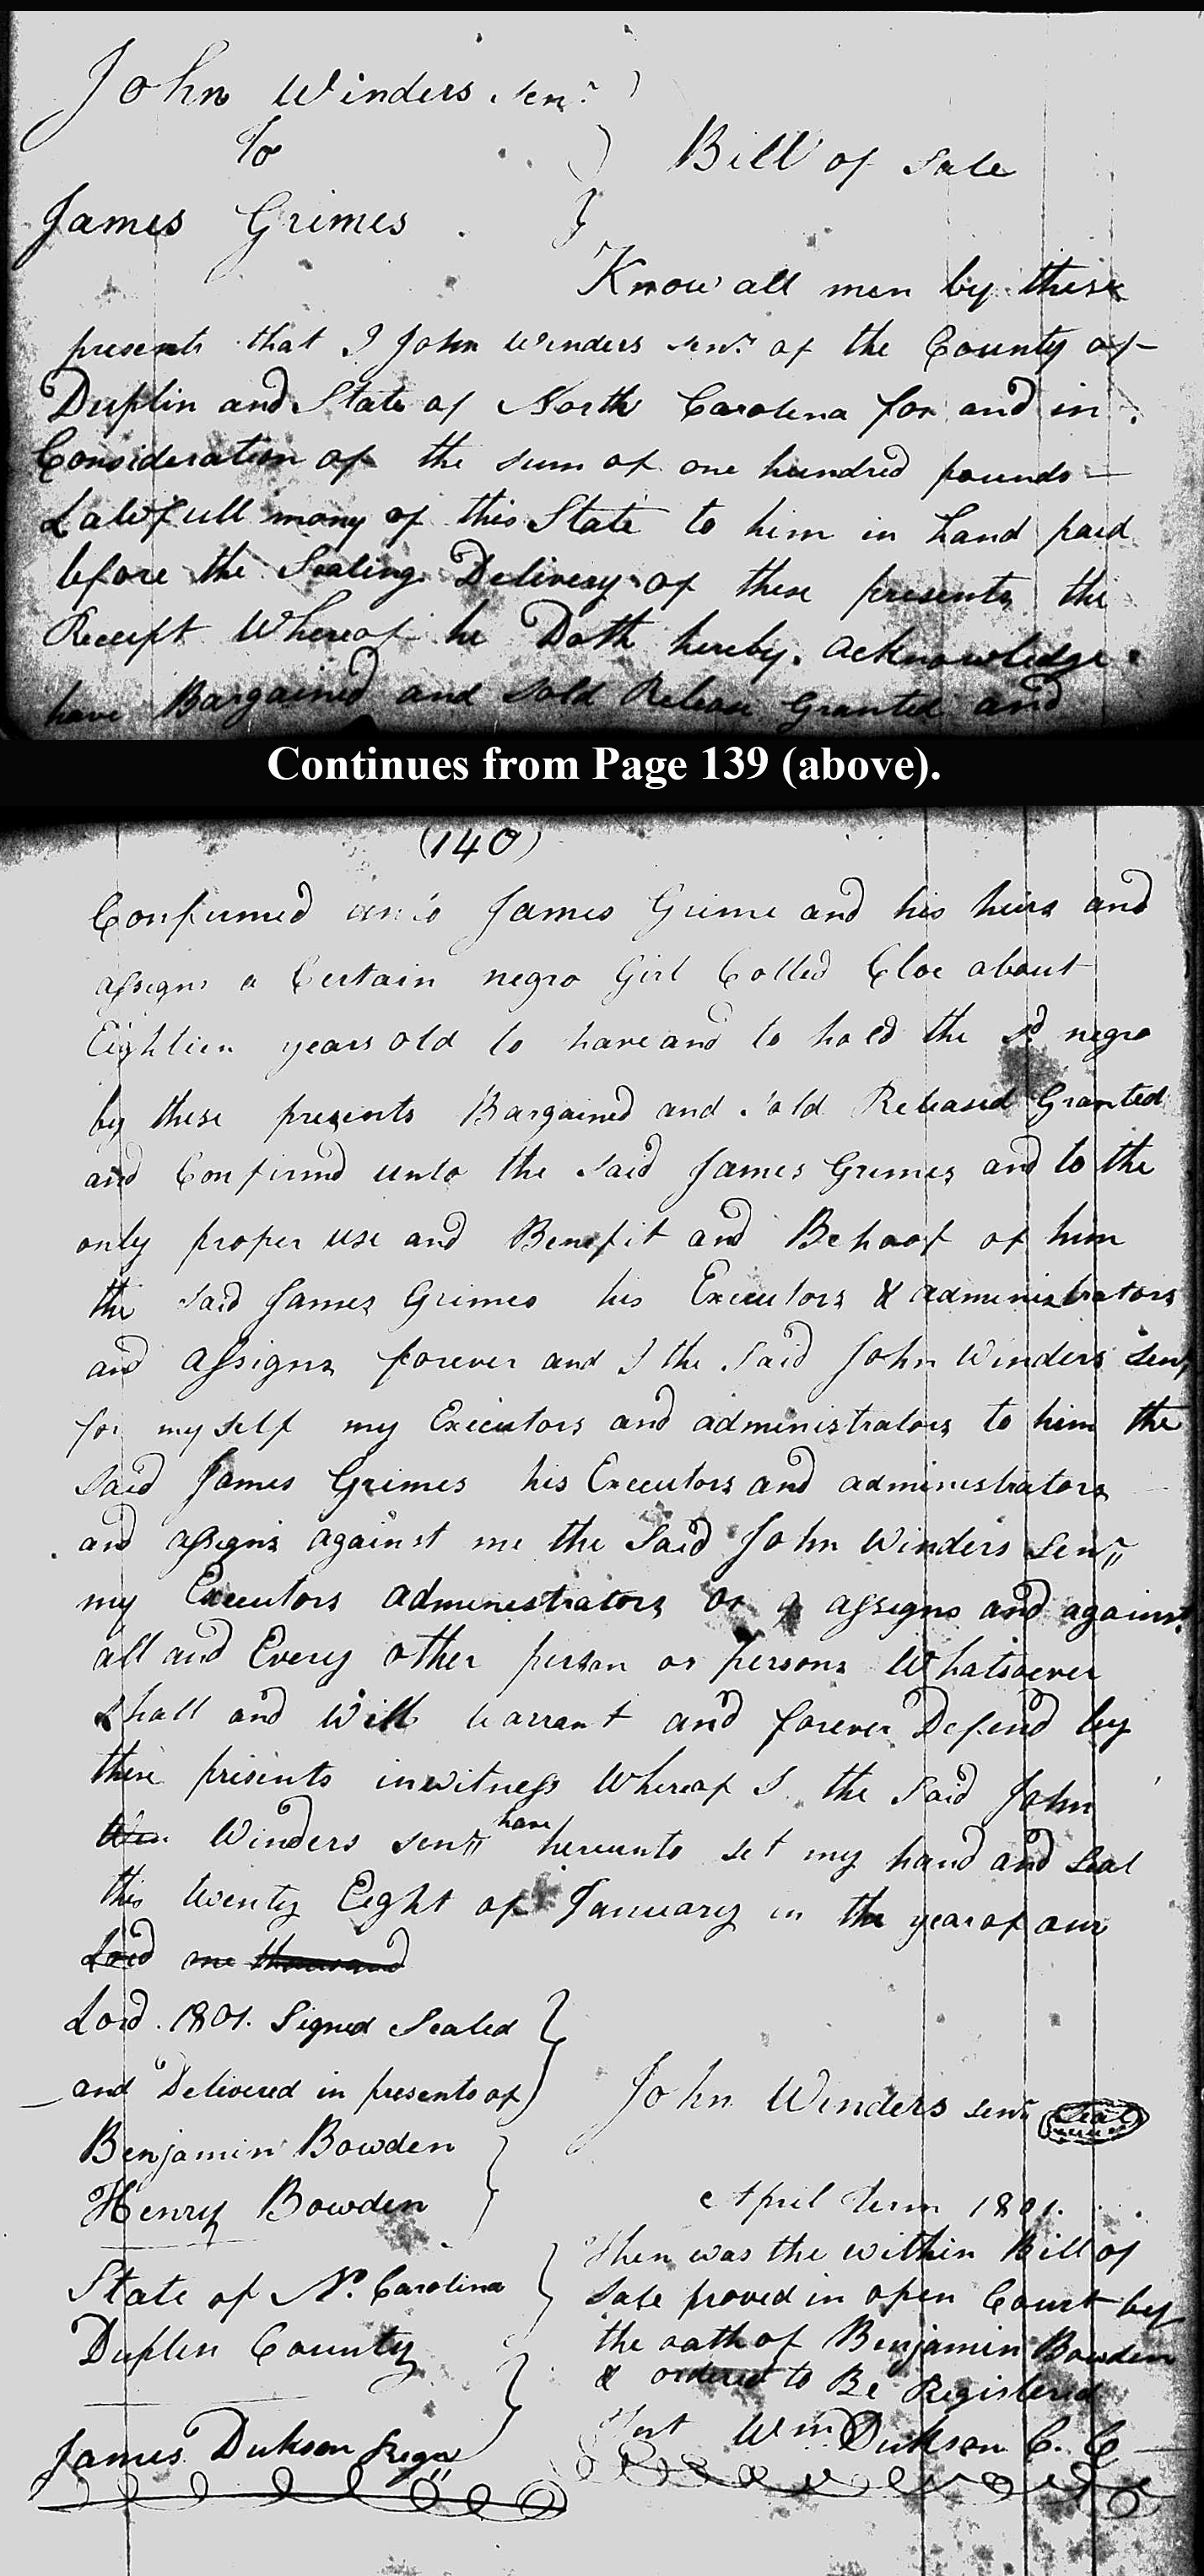 John Winders Senr.
To
Bill of Sale
James Grimes
Know all men by these
presents that I John Winders Senr. of the County of
Duplin and State of North Carolina for and in
Consideration of the sum of one hundred pounds
Lawfull mony of this State to him in hand paid
before the Sealing Delivery of these presents the
Receipt Whereof he Doth hereby acknowledge
have Bargained and Sold Release Granted and
Continues from Page 139 (above).
(140)
Confirmed unto James Grime and his heirs and
assigns a Certain negro Girl Colled Cloe about
Eightien years old to have and to hold the sd. negro
by these presents Bargained and Sold Released Granted
and Confirmd unto the Said James Grimes and to the
only proper use and Benefit and Behoof of him
the Said James Grimes his Executors & administrators
and assigns forever and I the Said John Winders Senr
for my self my Executors and administrators to him the
Said James Grimes his Executors and administrators
and assigns against me the Said John Winders Senr
my Executors administrators or assigns and against
all and Every other person or persons Whatsoever
Shall and Will warrant and forever Defend by
these presents in witness Whereof I the Said John
Win Winders Senr have hereunto set my hand and Seal
this twenty Eight of January in the year of our
Lord one thousand
Lord 1801. Signed Sealed
and Delivered in presents of
John Winders Senr Seal
Benjamin Bowden
Henry Bowden
April Term 1801.
Then was the within Bill of
State of No. Carolina
Sale proved in open Court by
Duplin County
the oath of Benjamin Bowden
& ordered to Be Registered
Test Wm. Dickson C. C
James Dickson Regr